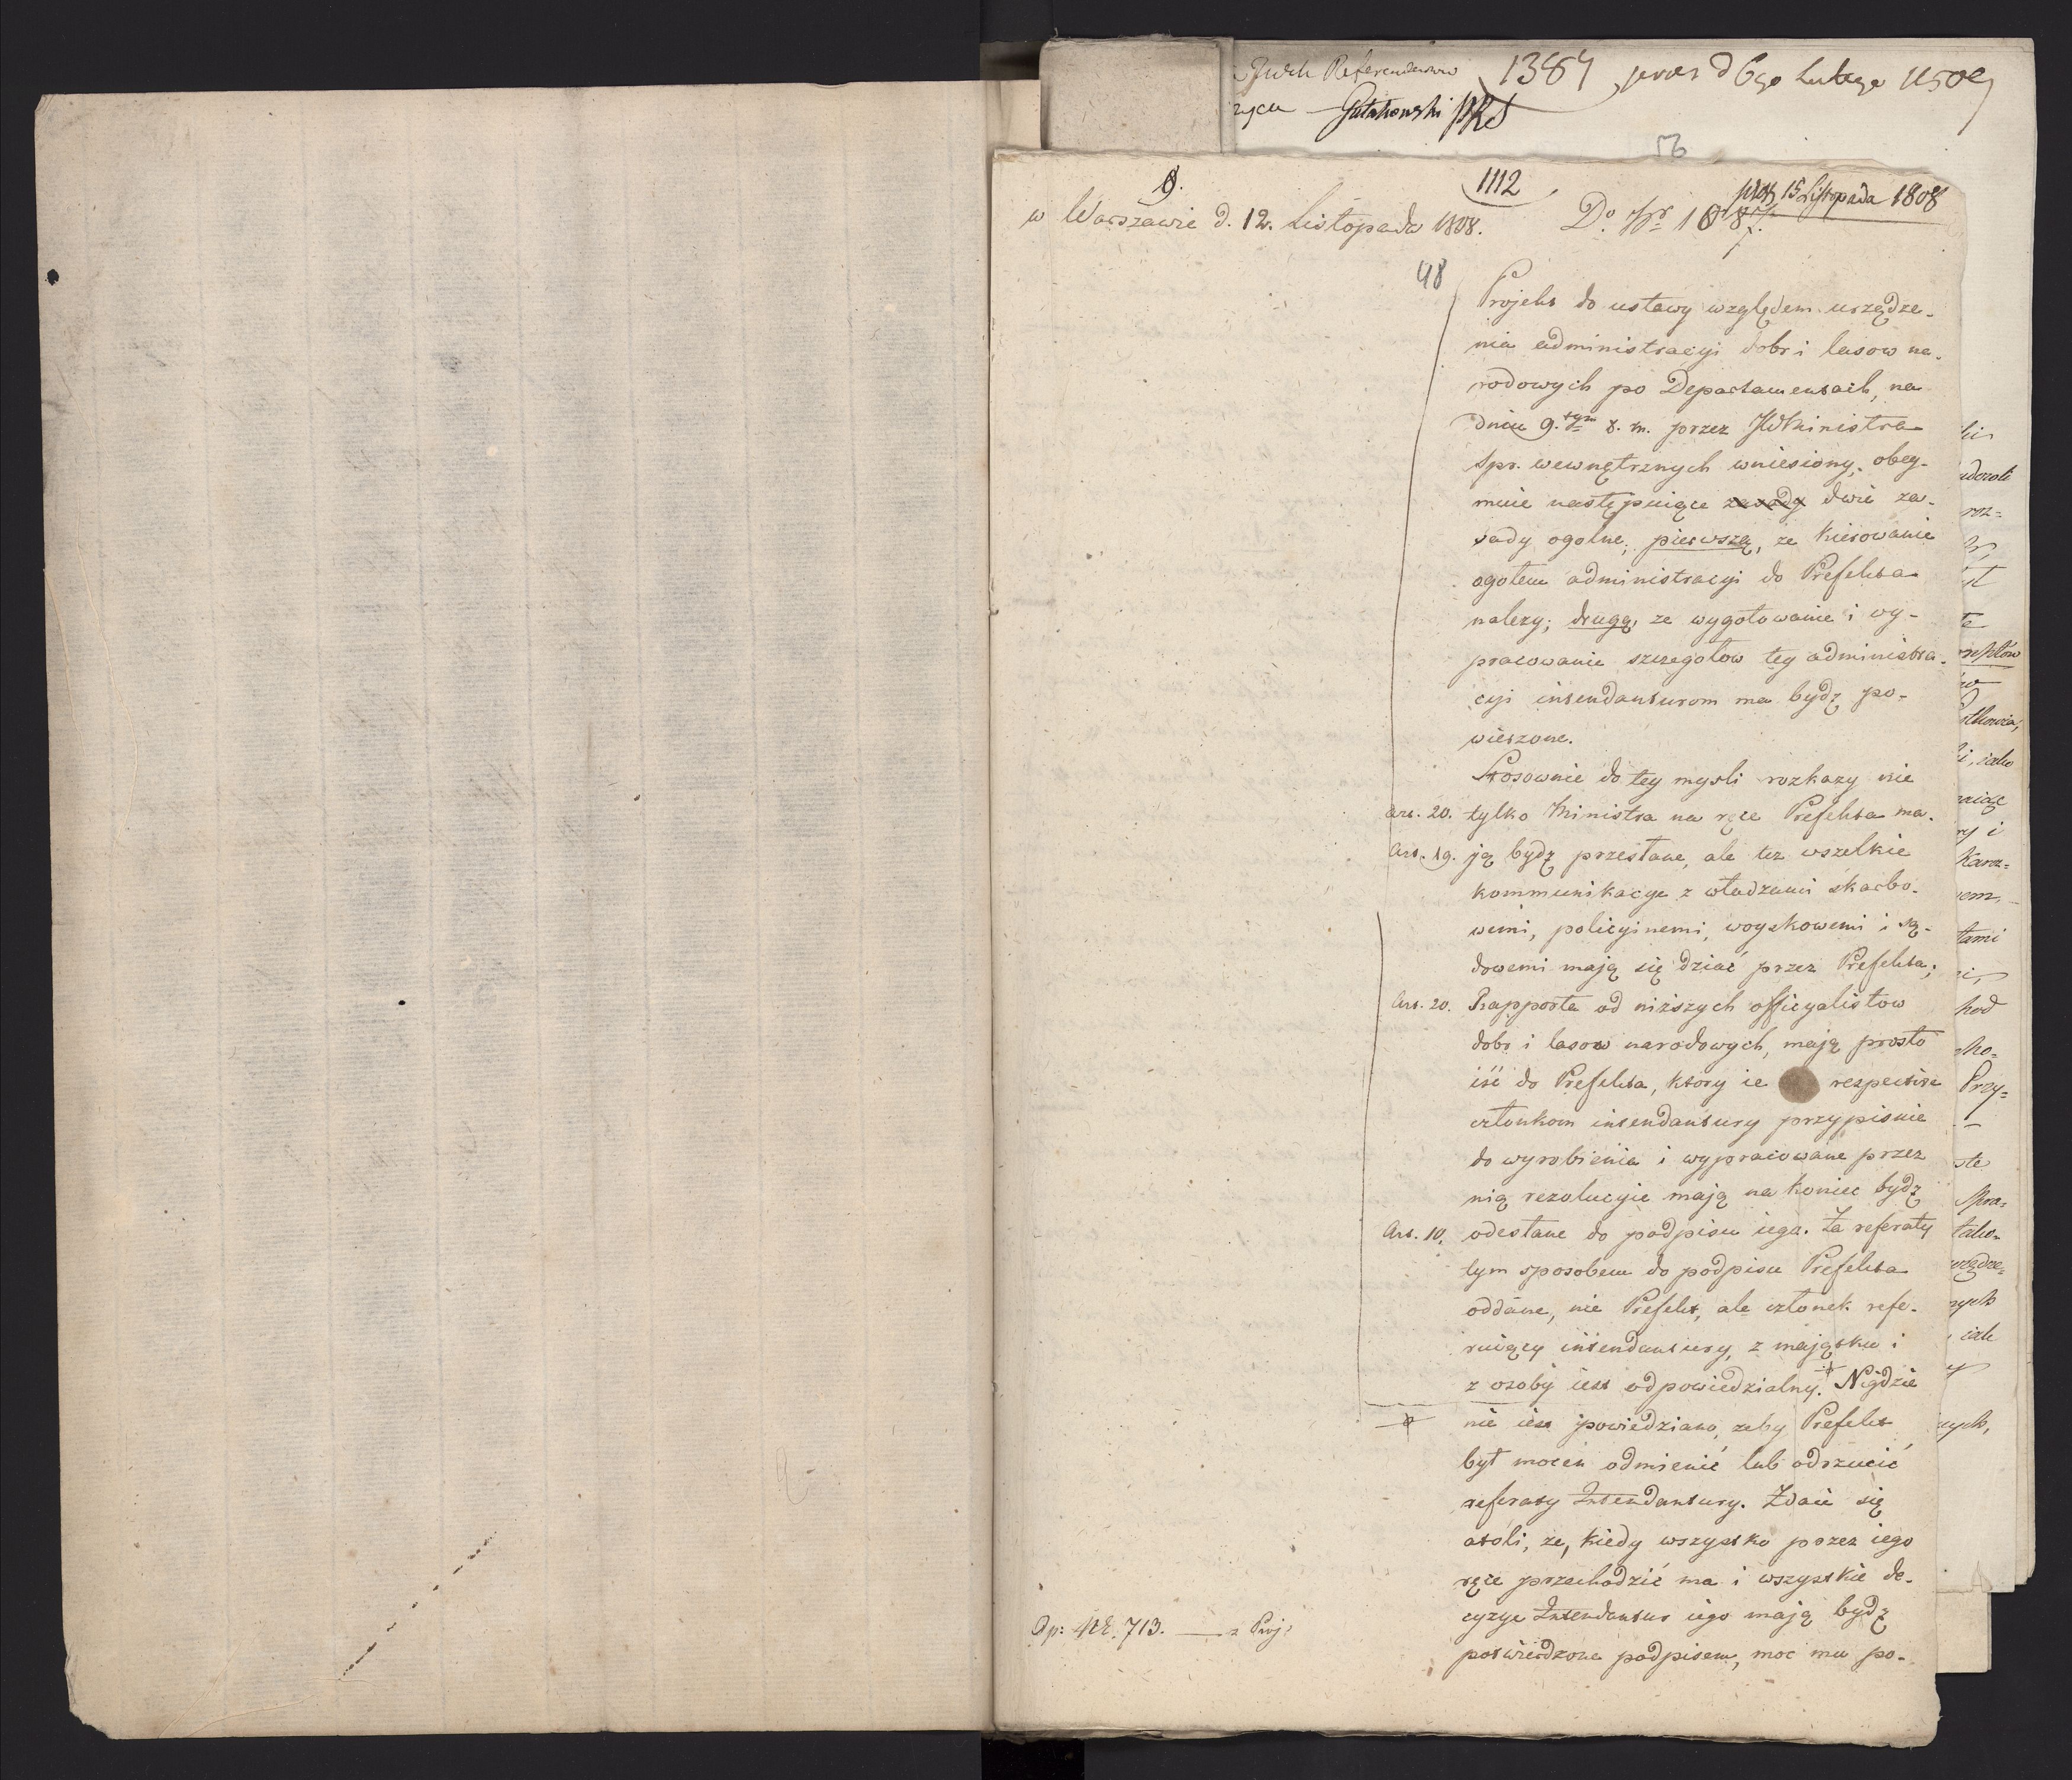 Referendarzow 1387 prez d 6go Lutego 1809
Gutakowski PRS
56
9.
1112
prez 15 Listopada 1808
w Warszawie d. 12. Listopada 1808.
Do. Nr 1087.
48
Projekt do ustawy względem urządze-
nia administracyi dobr i lasow na-
rodowych po Departamentach, na
dniu 9.tym b. m. przez JWMinistra
Spr. wewnętrznych wniesiony, obey-
muie następuiące zasady dwie za-
sady ogolne; pierwszą, ze kierowanie
ogołem administracyi do Prefekta
nalezy; drugą, ze wygotowanie i wy-
pracowanie szczegołow tey administra-
cyi intendanturom ma bydź po-
wierzone.
Stosownie do tey mysli rozkazy nie
Art. 20. tylko Ministra na ręce Prefekta ma-
Art. 19. ją bydź przesłane, ale tez wszelkie
kommunikacye z władzami skarbo-
wemi, policyinemi, woyskowemi i są-
dowemi mają się dziać przez Prefekta;
Art. 20. Rapporta od niższych officyalistow
dobr i lasow narodowych, mają prosto
iść do Prefekta, ktory ie respective
członkom intendantury przypisuie
do wyrobienia i wypracowane przez
nią rezolucyie mają na koniec bydź
Art. 10. odesłane do podpisu iego. Za referaty
tym sposobem do podpisu Prefekta
oddane, nie Prefekt, ale członek refe-
ruiący intendantury, z majątku i
z osoby iest odpowiedzialny. Nigdzie
nie iest powiedziano, zeby Prefekt
był mocen odmienić lub odrzucić
referaty Intendantury. Zdaie się
atoli, ze, kiedy wszystko przez iego
ręce przechodzić ma i wszystkie de-
cyzye Intendantur iego mają bydź
potwierdzone podpisem, moc mu po-
Op: Nr. 713. — z Proj: